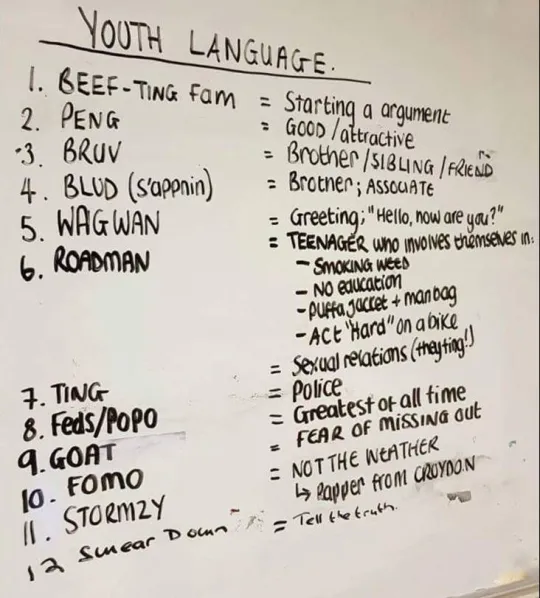 YOUTH LANGUAGE.
1. BEEF-TING Fam = Starting a argument
2. PENG = GOOD/attractive
3. BRUV = Brother/SIBLING/FRIEND
4. BLUD (s'appnin) = Brother; ASSOCIATE
5. WAGWAN = Greeting; "Hello, how are you?"
6. ROADMAN = TEENAGER who involves themselves in:
- SMOKING WEED
- NO education
- Puffa Jacket + manbag
- ACT "Hard" on a bike
7. TING = Sexual relations (they ting!)
8. Feds/POPO = Police
9. GOAT = Greatest of all time
10. FOMO = FEAR OF MISSING OUT
11. STORMZY = NOT THE WEATHER
↳ Rapper from CROYDON
12 Swear Down = Tell the truth.